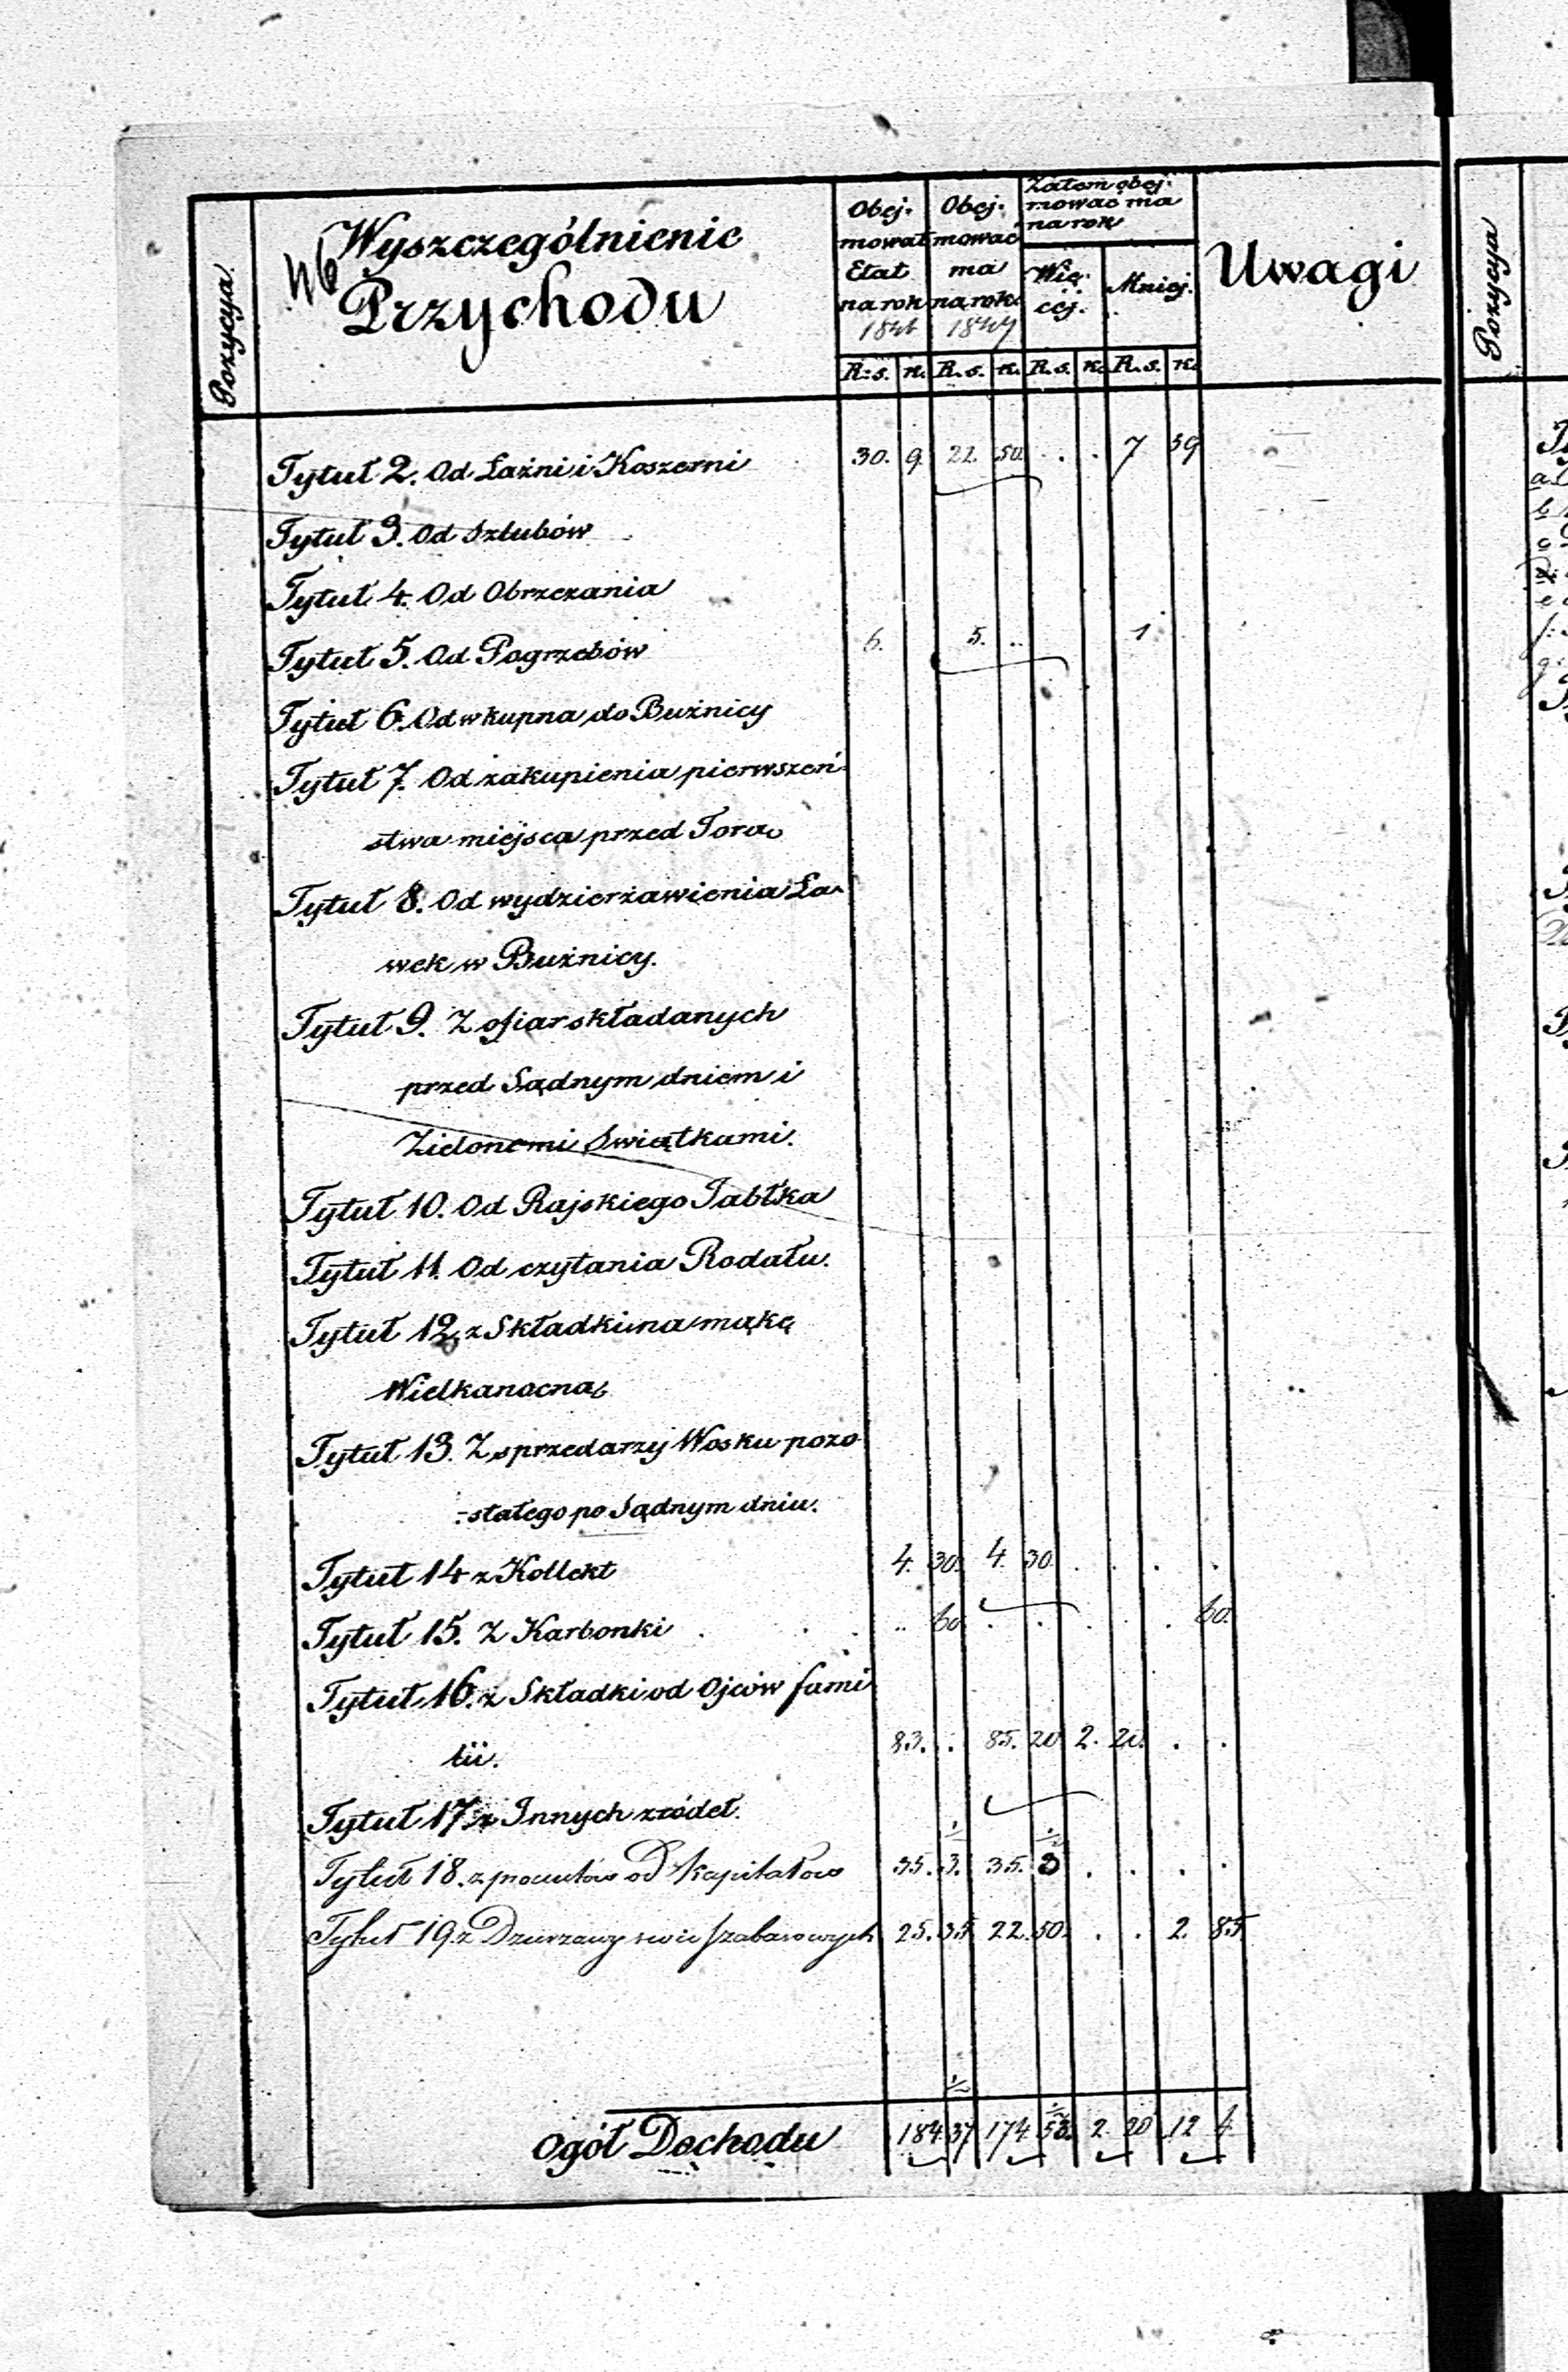 46
Pozycya
Wyszczególnienie
Przychodu
Obej-
mował
Etat
na rok
1846
Obej-
mować
ma
na rok
1847
Zatem obej-
mować ma
na rok
Wię-
cej.
Mniej.
Uwagi
R:s. k. R.s. k. R.s. k. R.s. k.
Tytuł 2. Od Łaźni i Koszerni 30. 9. 22. 50. . . 7 59
Tytuł 3. Od Szlubów
Tytuł 4. Od Obrzezania
Tytuł 5. Od Pogrzebów 6. 5. .. 1
Tytuł 6. Od wkupna do Bużnicy
Tytuł 7. Od zakupienia pierwszeń-
stwa miejsca przed Torą
Tytuł 8. Od wydzierżawienia Ła-
wek w Bużnicy.
Tytuł 9. Z ofiar składanych
przed Sądnym dniem i
Zielonemi Swiątkami.
Tytuł 10. Od Rajskiego Jabłka
Tytuł 11. Od czytania Rodału.
Tytuł 12. z Składki na mąkę
Wielkanocną
Tytuł 13. Z sprzedarzy Wosku pozo
-stałego po Sądnym dniu.
Tytuł 14 z Kollekt 4. 30. 4. 30. . . . .
Tytuł 15. Z Karbonki .. 60. . . . . . 60.
Tytuł 16. z Składki od Ojców fami
lii. 83. . 85. 20 2. 20. . .
Tytuł 17. z Innych zródeł.
Tytuł 18. z procentów od kapitałow 35. 3. 35. 3 . . . .
Tytuł 19. z Dzierzawy swic szabasowych 25. 35 22. 50. . . 2. 85
Ogół Dochodu 184 37 174 53. 2. 20 12 4
Pozycya